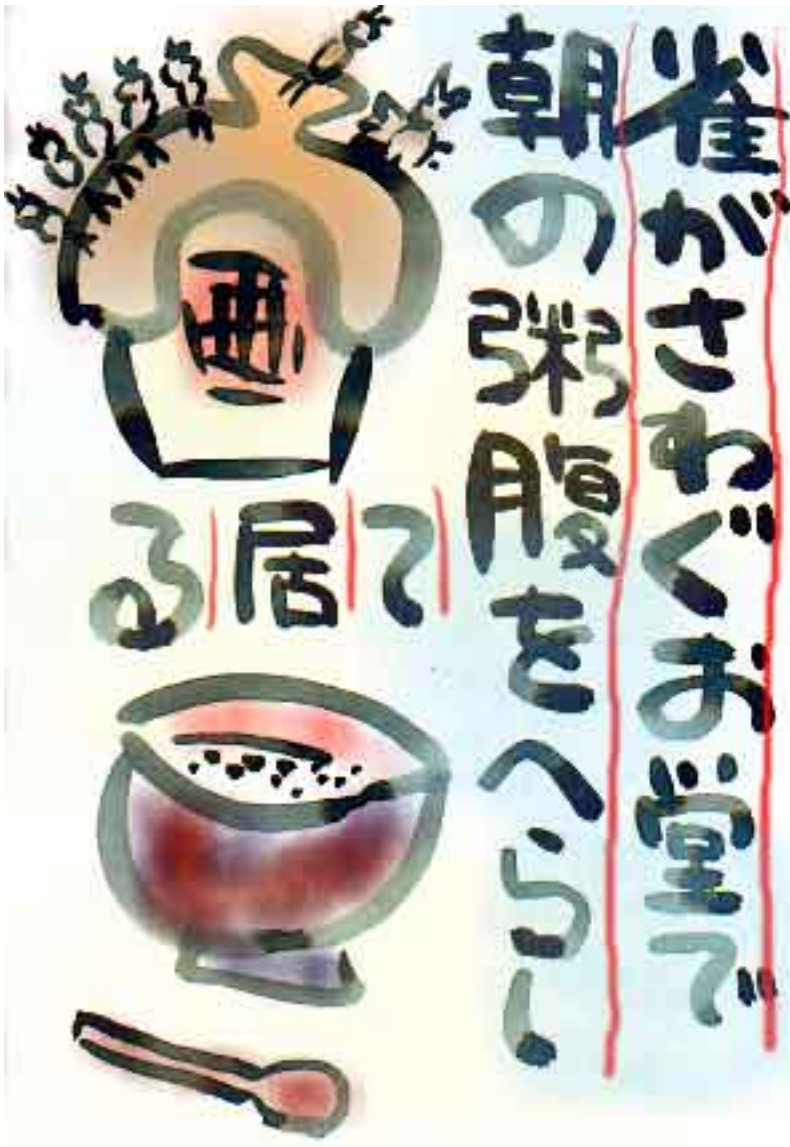 雀がさわぐお堂で
朝の粥腹をへらし
て
居
る